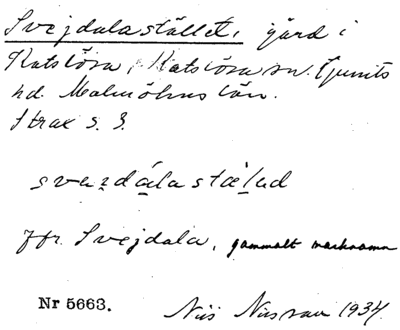 Svejdalastället, gård i
Katslösa, Katslösa sn. Ljunits
hd. Malmöhus län.
Strax s. 3.
svezdálastælud
Jfr. Svejdala, gammalt marknamn
Nr 5663.
Nils Nilsson 1934